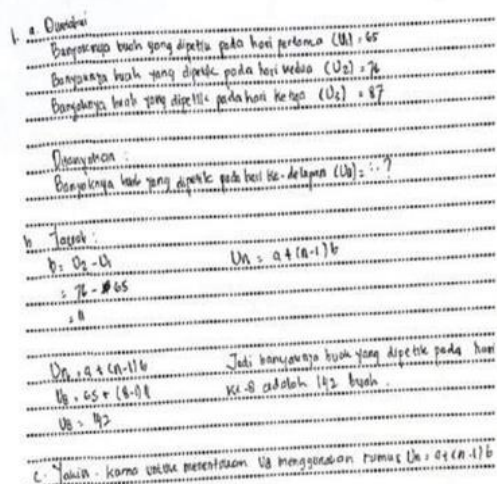 1. a. Diketahui
Banyaknya buah yang dipetik pada hari pertama (U1) = 65
Banyaknya buah yang dipetik pada hari kedua (U2) = 76
Banyaknya buah yang dipetik pada hari ketiga (U3) = 87
Ditanyakan :
Banyaknya buah yang dipetik pada hari ke-delapan (U8) = ..?
b Jawab :
b = U2 - U1 Un = a + (n-1) b
= 76 - 65
= 11
Un = a + (n-1) b Jadi banyaknya buah yang dipetik pada hari
U8 = 65 + (8-1) ke-8 adalah 142 buah.
U8 = 142
c. Yakin. karna untuk menentukan U8 menggunakan rumus Un = a + (n-1) b